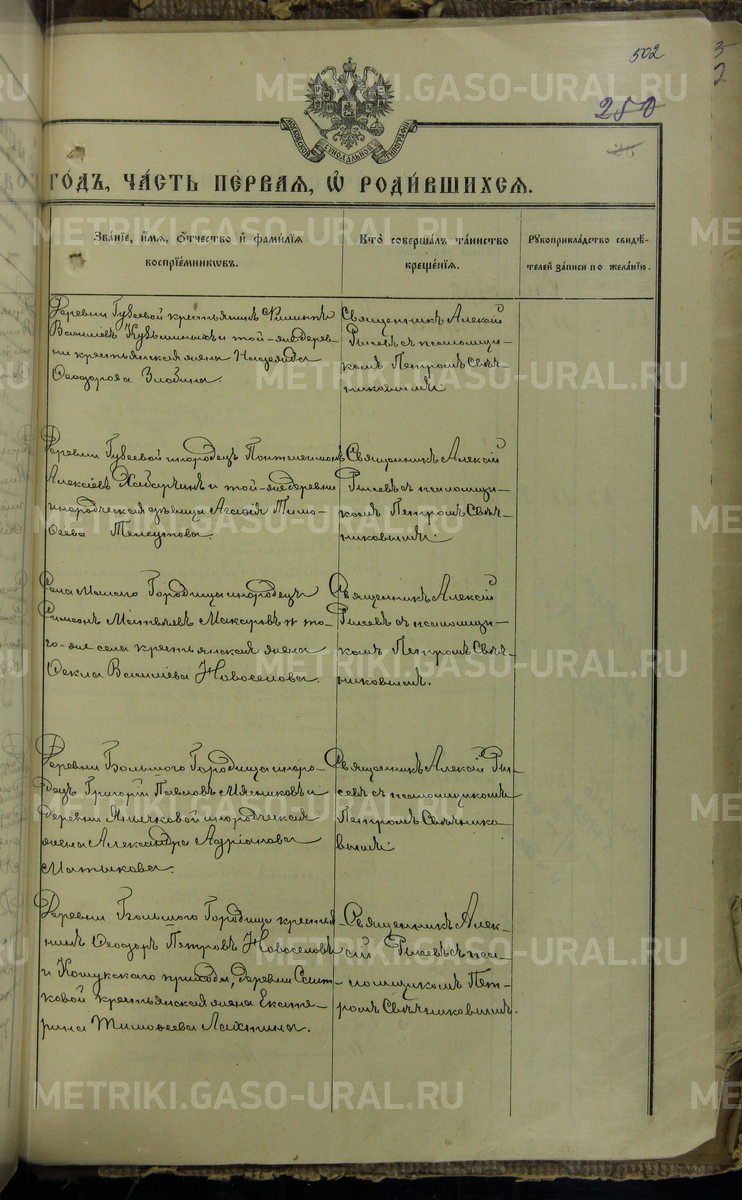 502
250
МОСКОВСКОЙ СУНОДАЛЬНОЙ ТИПОГРАФІИ
ГОДЪ, ЧАСТЬ ПЕРВАЯ, Ѡ РОДИВШИХСЯ.
Званіе, имя, отчество и фамилія
воспріемниковъ.
Кто совершалъ таинство
крещенія.
Рукоприкладство свидѣ-
телей записи по желанію.
Деревни Губаевой крестьянинъ Филиппъ
Васильевъ Кувшинныхъ и той-же дерев
ни крестьянская жена Надежда
Ѳеодорова Злобина.
Священникъ Алексій
съ псаломщи-
комъ Петромъ Свѣч-
никовымъ.
Деревни Губаевой инородецъ Пантелеимонъ
Алексѣевъ и той-же деревни
инородческая дѣвица Агафія Тимо-
ѳеева Телеутова.
Священникъ Алексій
съ псаломщи-
комъ Петромъ Свѣч-
никовымъ.
Села Малаго Городища инородецъ
Симеонъ Матвѣевъ Макаровъ и то-
го-же села крестьянская жена
Ѳекла Васильева Новоселова.
Священникъ Алексій
съ псаломщи-
комъ Петромъ Свѣч-
никовымъ.
Деревни Большого Городища иноро-
децъ Григорій Павловъ Мясниковъ и
деревни Янычковой инородческая
жена Александра Адріанова
Матыкова.
Священникъ Алексій
съ псаломщикомъ
Петромъ Свѣчнико-
вымъ.
Деревни Большого Городища крестья-
нинъ Ѳеодоръ Петровъ Новоселовъ
и Кошукскаго прихода, деревни
крестьянская жена Екате-
рина Тимоѳеева Лахтина.
Священникъ Алек-
сій съ пса-
ломщикомъ Пет-
ромъ Свѣчниковымъ.
METRIKI.GASO-URAL.RU